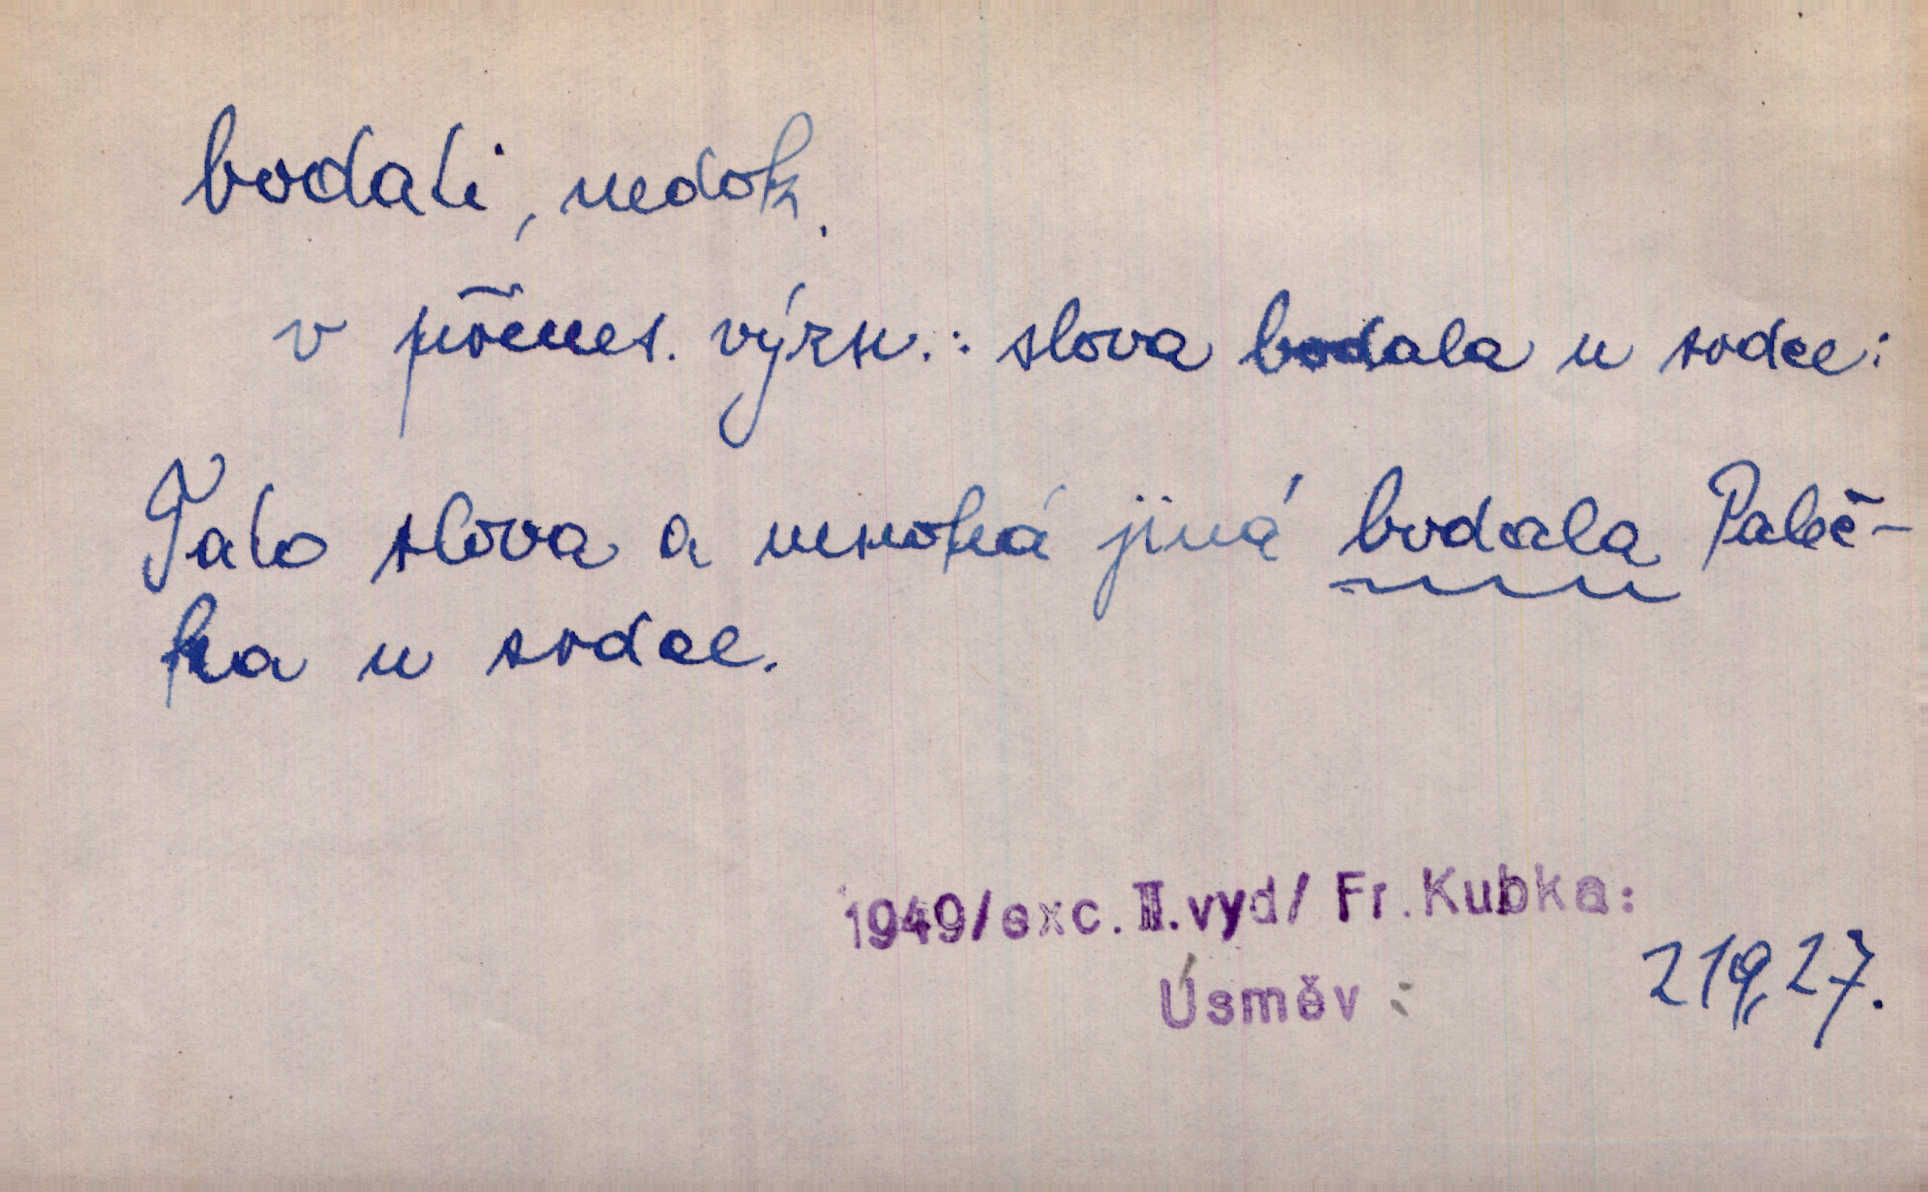 bodati, nedok.
v přenes. význ.: slova bodala u srdce:
Tato slova a mnohá jiná bodala Paleč-
ka u srdce.
1949/exc. III.vyd/ Fr. Kubka:
Úsměv : 219,27.